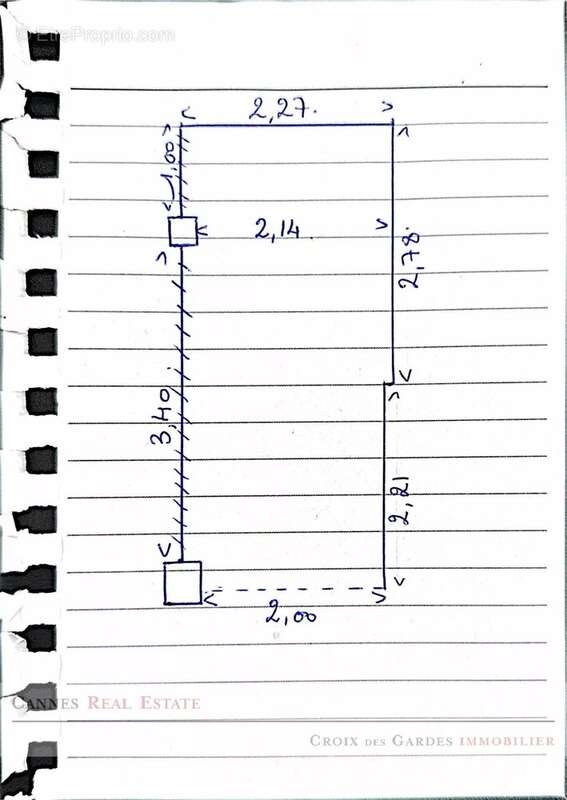 © EtreProprio.com
2,27.
1,00
2,14.
2,78.
3,40
2,21
2,00
CANNES REAL ESTATE
CROIX DES GARDES IMMOBILIER